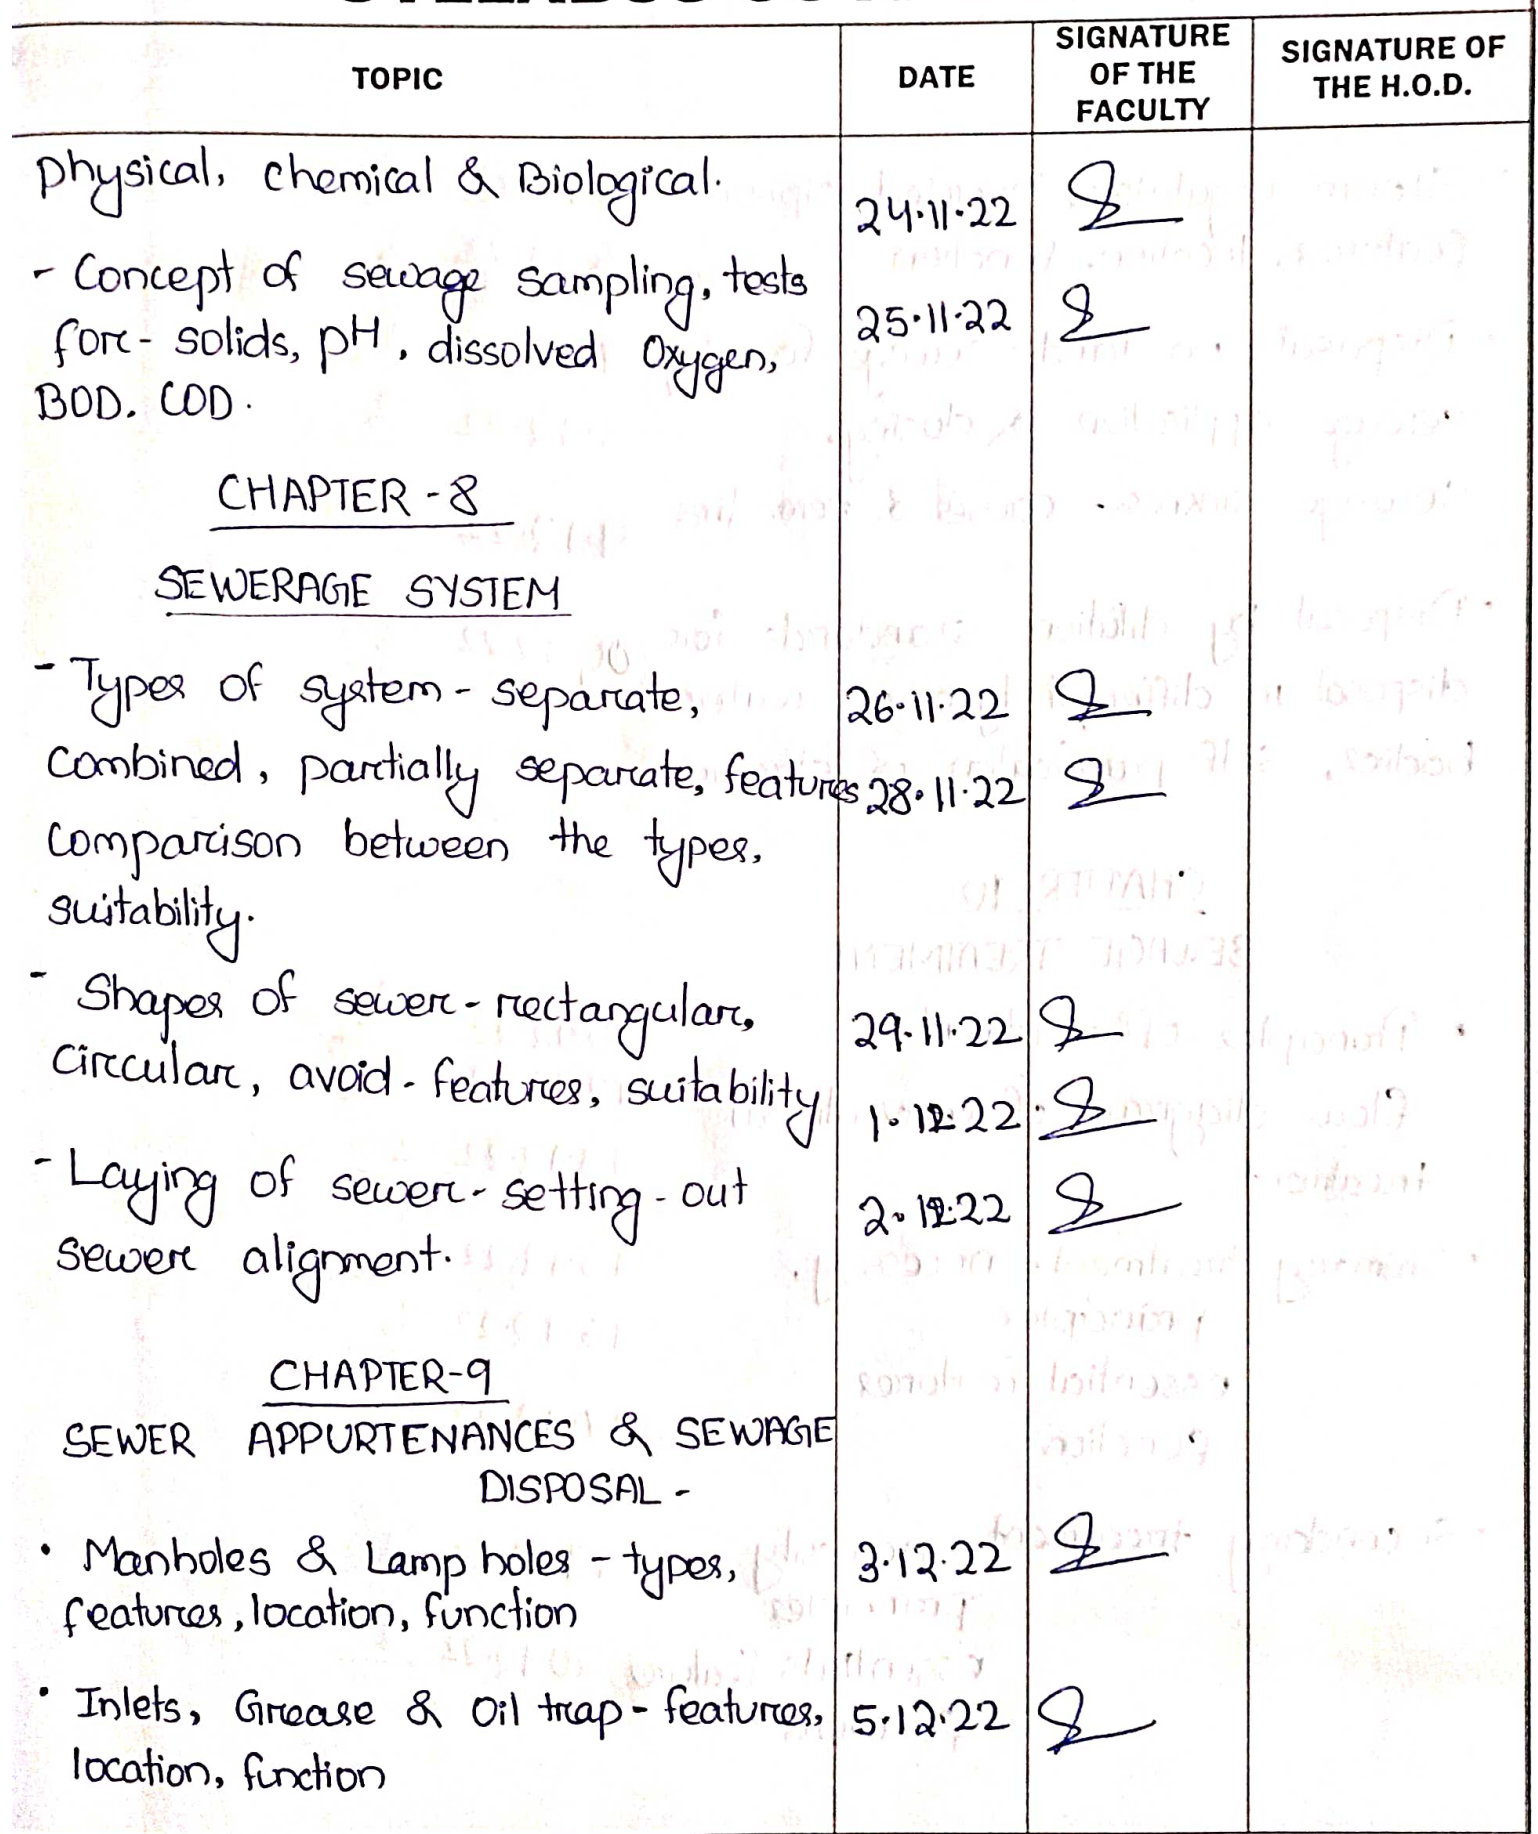 TOPIC DATE SIGNATURE OF THE FACULTY SIGNATURE OF THE H.O.D.
Physical, Chemical & Biological.
24.11.22
- Concept of sewage sampling, tests
25.11.22
for - solids, pH, dissolved Oxygen,
BOD. COD.
CHAPTER - 8
SEWERAGE SYSTEM
- Types of system - separate, 26.11.22
combined, partially separate, features 28.11.22
comparison between the types,
suitability.
- Shapes of sewer - rectangular, 29.11.22
circular, avoid - features, suitability 1.12.22
- Laying of sewer - setting - out 2.12.22
sewer alignment.
CHAPTER-9
SEWER APPURTENANCES & SEWAGE
DISPOSAL -
• Manholes & Lamp holes - types, 3.12.22
features, location, function
• Inlets, Grease & Oil trap - features, 5.12.22
location, function